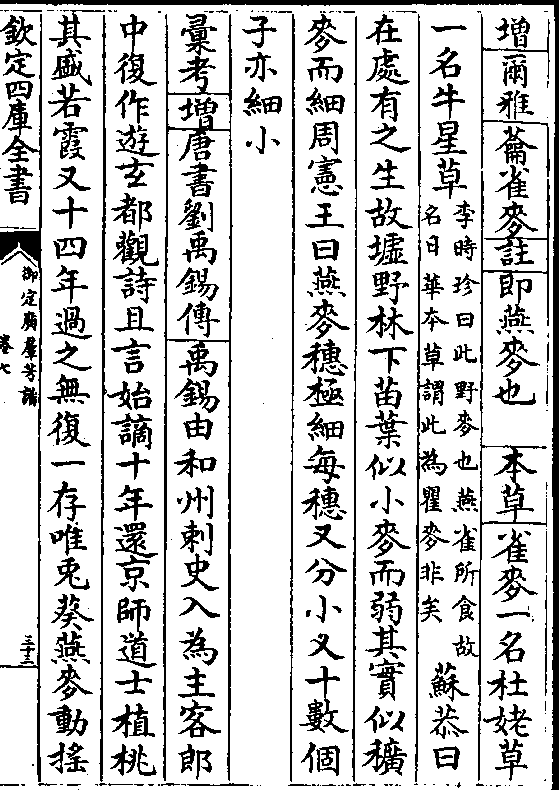 增爾雅蘥雀麥註即燕麥也 本草雀麥一名杜姥草
一名牛星草李時珍曰此野麥也燕雀所食故名日華本草謂此為瞿麥非矣蘇恭曰
在處有之生故墟野林下苗葉似小麥而弱其實似穬
麥而細周憲王曰燕麥穗極細每穗又分小乂十數個
子亦細小
彙考增唐書劉禹錫傳禹錫由和州刺史入為主客郎
中復作遊玄都觀詩且言始謫十年還京師道士植桃
其盛若霞又十四年過之無復一存唯兎葵燕麥動搖
欽定四庫全書
御定廣羣芳譜
卷七
三十三